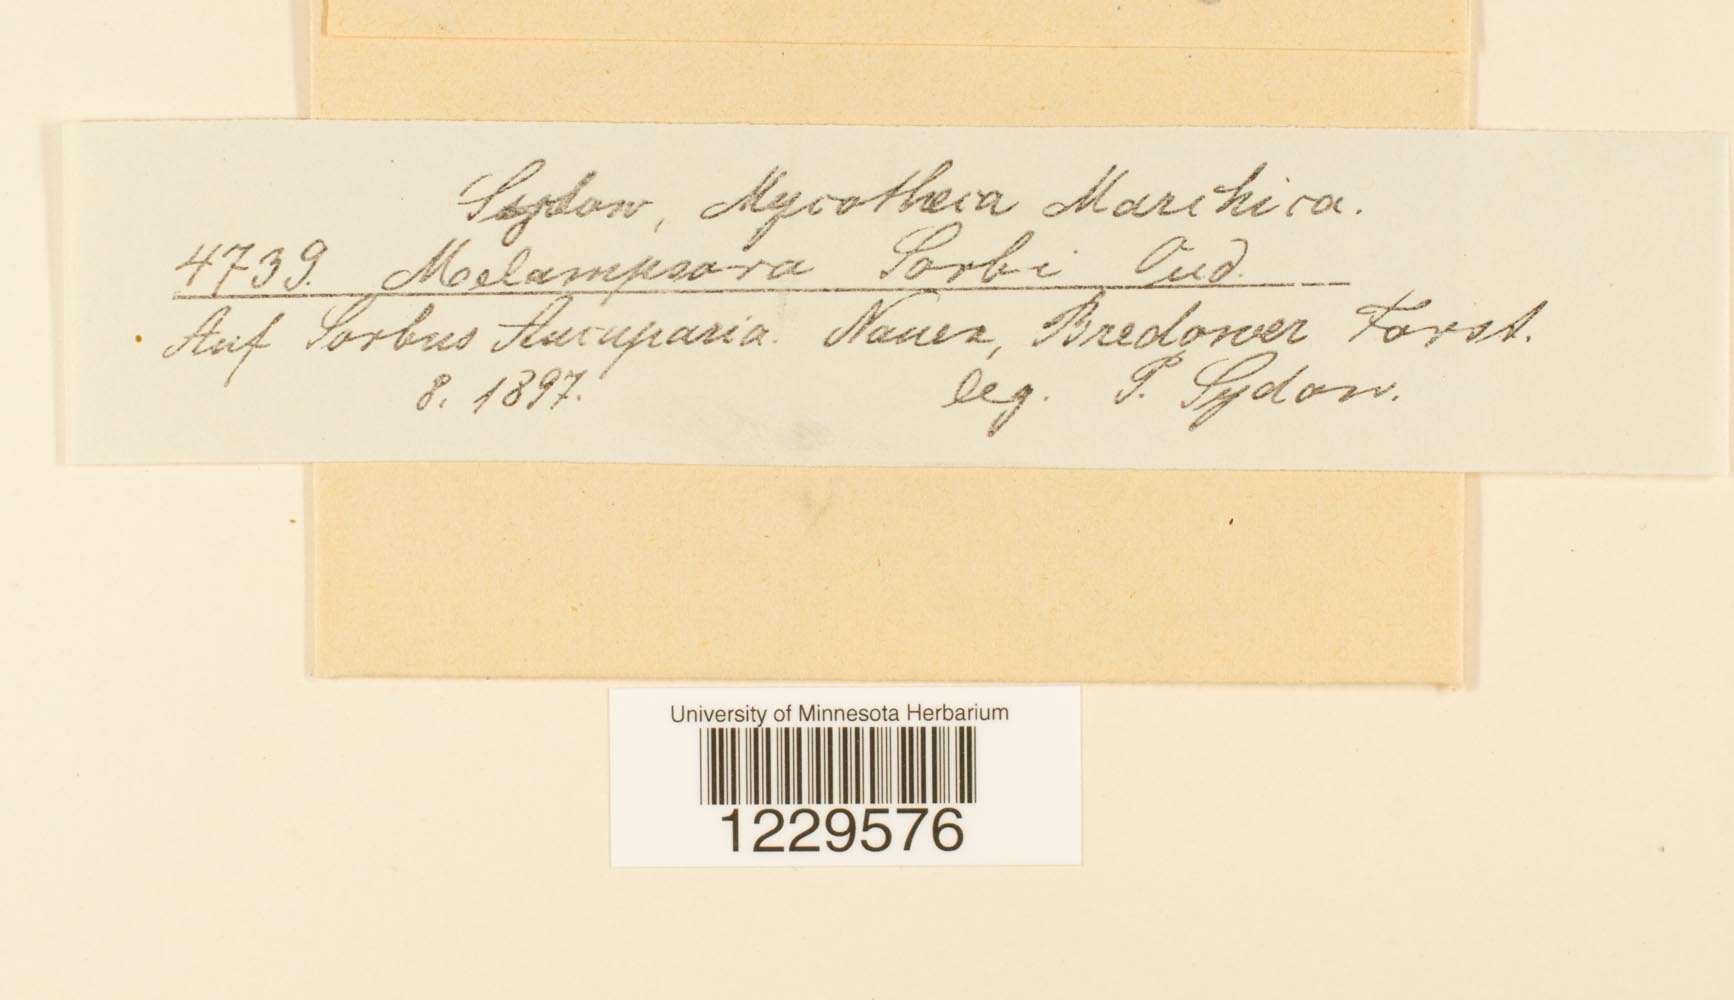 Sydow, Mycotheca Marchica.
4739. Melampsora Sorbi Oud.
Auf Sorbus Aucuparia. Nauen, Bredower Forst.
8. 1897. leg. P. Sydow.
University of Minnesota Herbarium
1229576